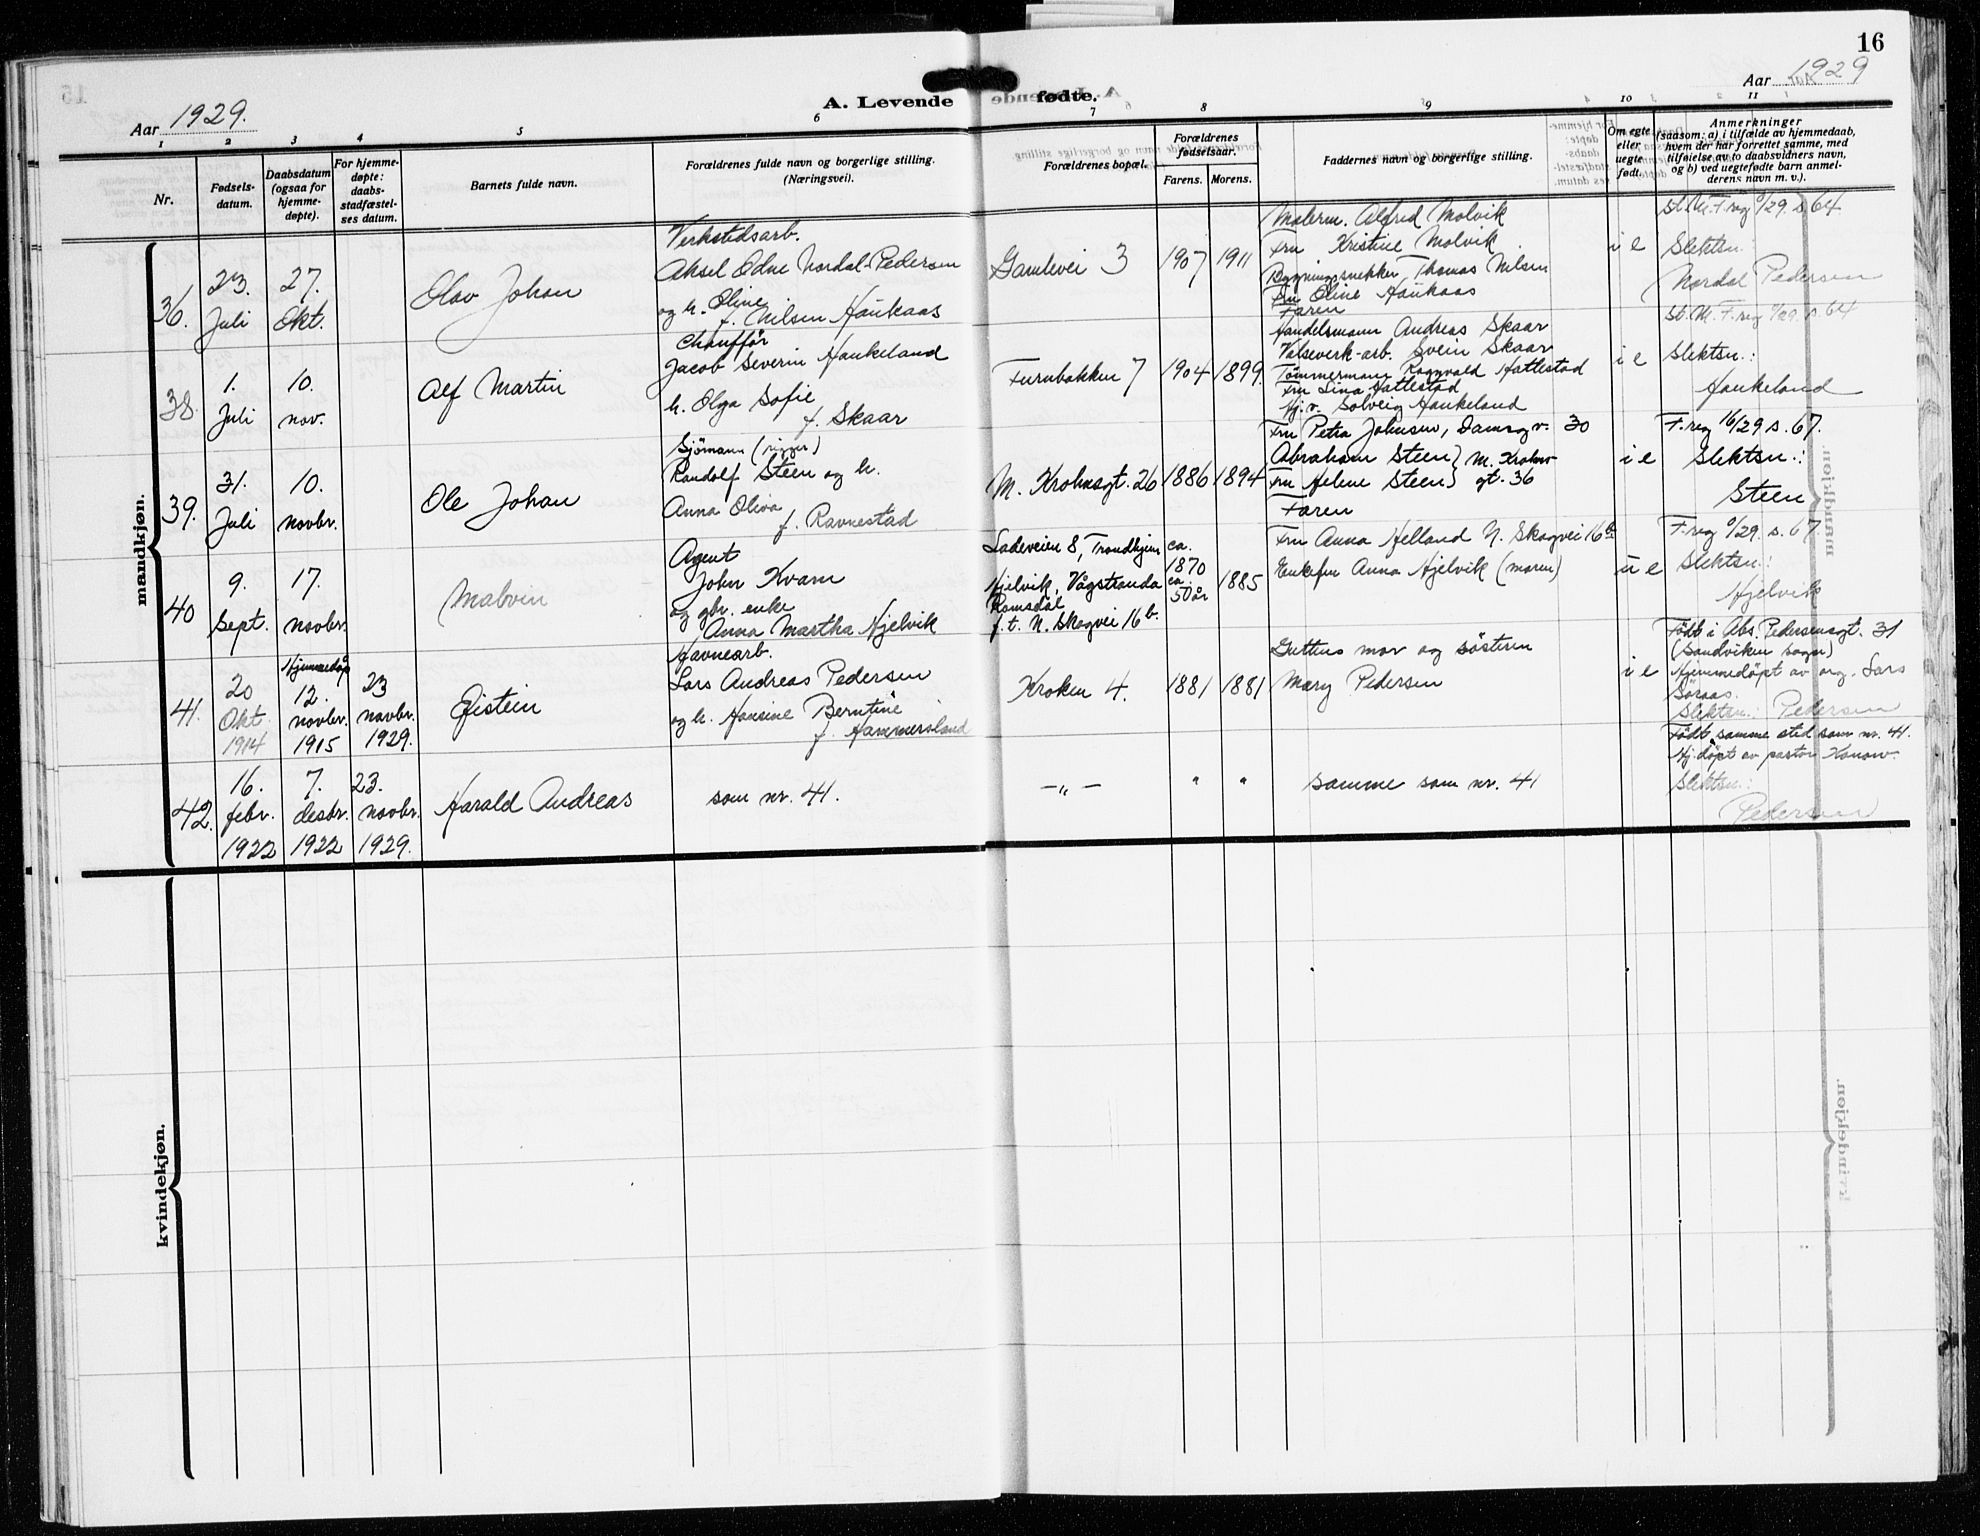 16
Aar 1929.
A. Levende fødte.
Aar 1929
1 2 3 4 5 6 7 8 9 10 11
Nr.
Fødsels-
datum.
Daabsdatum
(ogsaa for
hjemme-
døpte).
For hjemme-
døpte:
daabs-
stadfæstel-
ses datum.
Barnets fulde navn.
Forældrenes fulde navn og borgerlige stilling.
(Næringsvei).
Forældrenes bopæl.
Forældrenes
fødselsaar.
Farens. Morens.
Faddernes navn og borgerlige stilling.
Om egte
eller
uegte
født.
Anmerkninger
(saasom: a) i tilfælde av hjemmedaab,
hvem der har forrettet samme, med
tilføielse av to daabsvidners navn,
og b) ved uegtefødte barn anmel-
derens navn m. v.).
mandkjøn.
36.
23.
Juli
27.
Okt.
Olav Johan
Verkstedsarb.
Aksel Odne Nordal-Pedersen
og h. Oline
f. Nilsen Haukaas
Gamlevei 3
1907
1911
Malerm. Alfred Molvik
Fru Kristine Molvik
Bygningssnekker Thomas Nilsen
Fru Oline Haukaas
Faren
i e
St. M. F. reg 0/29. s. 64
Slektsn.:
Nordal Pedersen
38.
1.
Juli
10.
nov.
Alf Martin
Chauffør
Jacob Severin Haukeland
h. Olga Sofie
f. Skaar
Furubakken 7
1904
1899.
Handelsmann Andreas Skaar
Valseverk-arb. Svein Skaar
Tømmermann Ragnvald Hattestad
Fru Lina Hattestad
Hj. v. Solveig Haukeland
i e
St. M. F. reg 0/29. s. 64
Slektsn.:
Haukeland
39.
31.
Juli
10.
novbr.
Ole Johan
Sjömann (rigger)
Randolf Steen og h.
Anna Oliva
f. Ravnestad
M. Krohnsgt. 26
1886
1894
Fru Petra Johnsen, Damsgv. 30
Abraham Steen } M. Krohns-
Fru Helene Steen } gt. 36
Faren
i e
F. reg 16/29 s. 67.
Slektsn.:
Steen
40
9.
Sept.
17.
novbr.
Malvin
Agent
John Kvam
og gbr. enke
Anna Martha Hjelvik
Ladeveien 8, Trondhjem
Hjelvik, Vågstranda
Romsdal
f. t. N. Skogvei 16 b.
ca.
1870
ca.
50 år
1885
Fru Anna Helland N. Skogvei 16 b
Enkefru Anna Hjelvik (moren)
u e
F. reg 0/29. s. 67.
Slektsn.:
Hjelvik
41.
20
Okt.
1914
Hjemmedøp
12.
novbr.
1915
23
novbr.
1929.
Øistein
Havnearb.
Lars Andreas Pedersen
og h. Hansine Berntine
f. Hammersland
Kroken 4.
1881
1881
Guttens mor og søsteren
Mary Pedersen
i e
Født i Abs. Pedersensgt. 31
(Sandviken sogn)
Hjemmedøpt av org. Lars
Søraas.
Slektsn.: Pedersen
42.
16.
febr.
1922
7.
desbr.
1922
23.
novbr.
1929.
Harald Andreas
som nr. 41.
— „ —
"
"
samme som nr. 41
Født samme sted som nr. 41.
Hj. døpt av pastor Konow.
Slektsn.:
Pedersen
kvindekjøn.